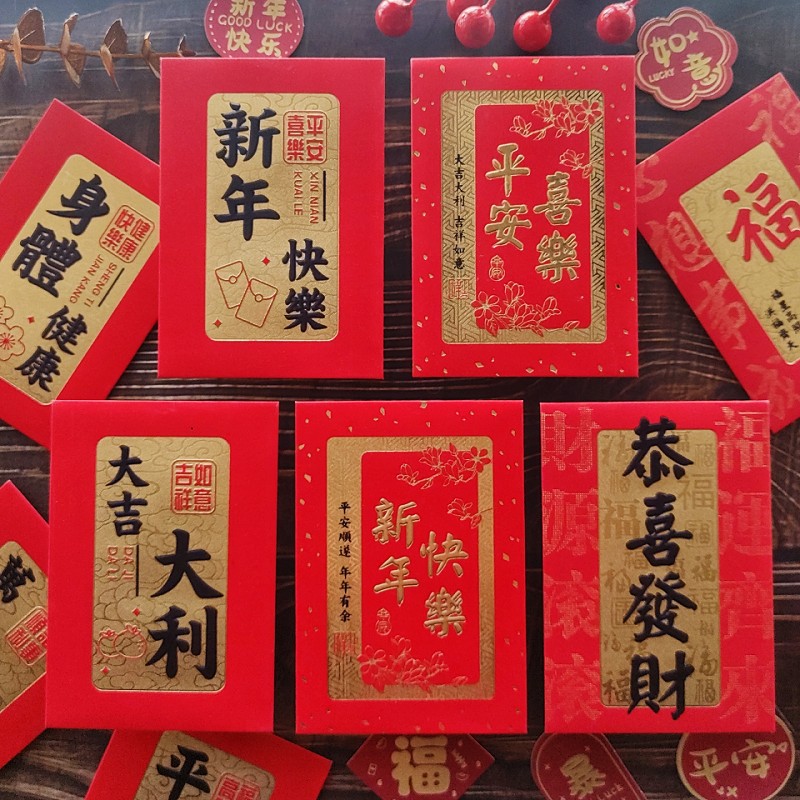 新年
GOOD LUCK
快乐
如意
LUCKY
身體
健康
健康
快樂
SHENG TI
JIAN KANG
新年
快樂
平安
喜樂
XIN NIAN
KUAI LE
平安
喜樂
大吉大利 吉祥如意
福
想
事
大吉
大利
如意
吉祥
DA JI
DA LI
新年
快樂
平安順遂 年年有余
恭喜發財
財源滾滾
福運齊來
萬
平
福
暴
平安